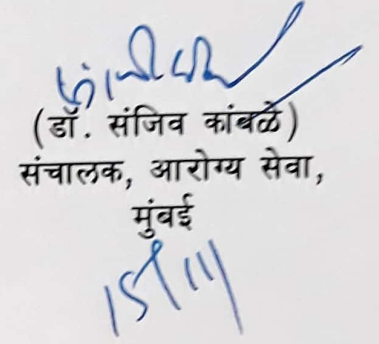 (डॉ. संजिव कांबळे)
संचालक, आरोग्य सेवा,
मुंबई
15/11